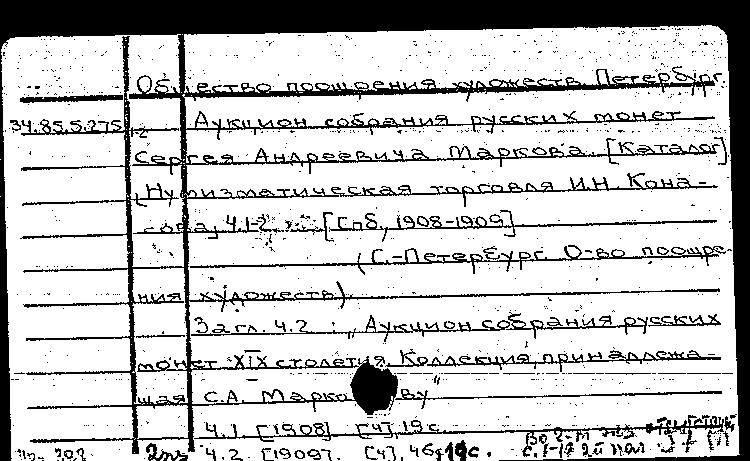 Общество поощрения художеств. Петербург.
34.85.5.275
1-2
Аукцион собрания русских монет
Сергея Андреевича Маркова. [Каталог]
[Нумизматическая торговля И.Н. Кона-
сова, Ч.1-2 [Спб., 1908-1909]
(С.-Петербург. О-во поощре-
ния художеств).
Загл. Ч.2 : „Аукцион собрания русских
монет XIX столетия. Коллекция, принадлежа-
щая С.А. Маркову"
Ч.1. [1908] [4], 19 с.
Ч.2. [1909]. [4], 46, 19 с.
Во 2-м экз.
с. 1-17 2й пол.